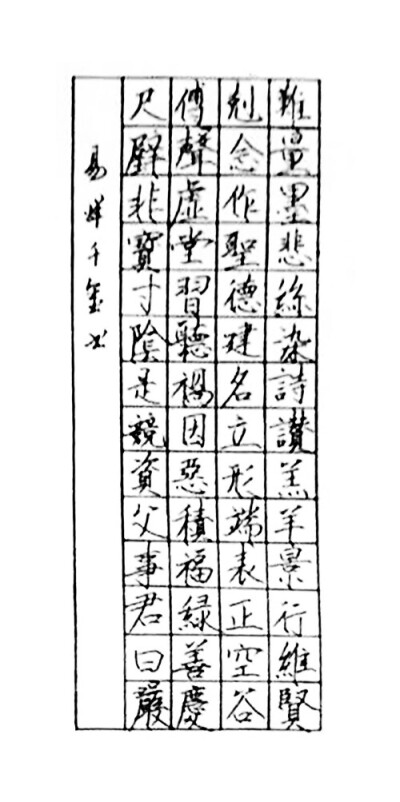 難量墨悲絲染詩讚羔羊景行維賢
剋念作聖德建名立形端表正空谷
傳聲虛堂習聽禍因惡積福緣善慶
尺璧非寶寸陰是競資父事君曰嚴
易烊千璽书